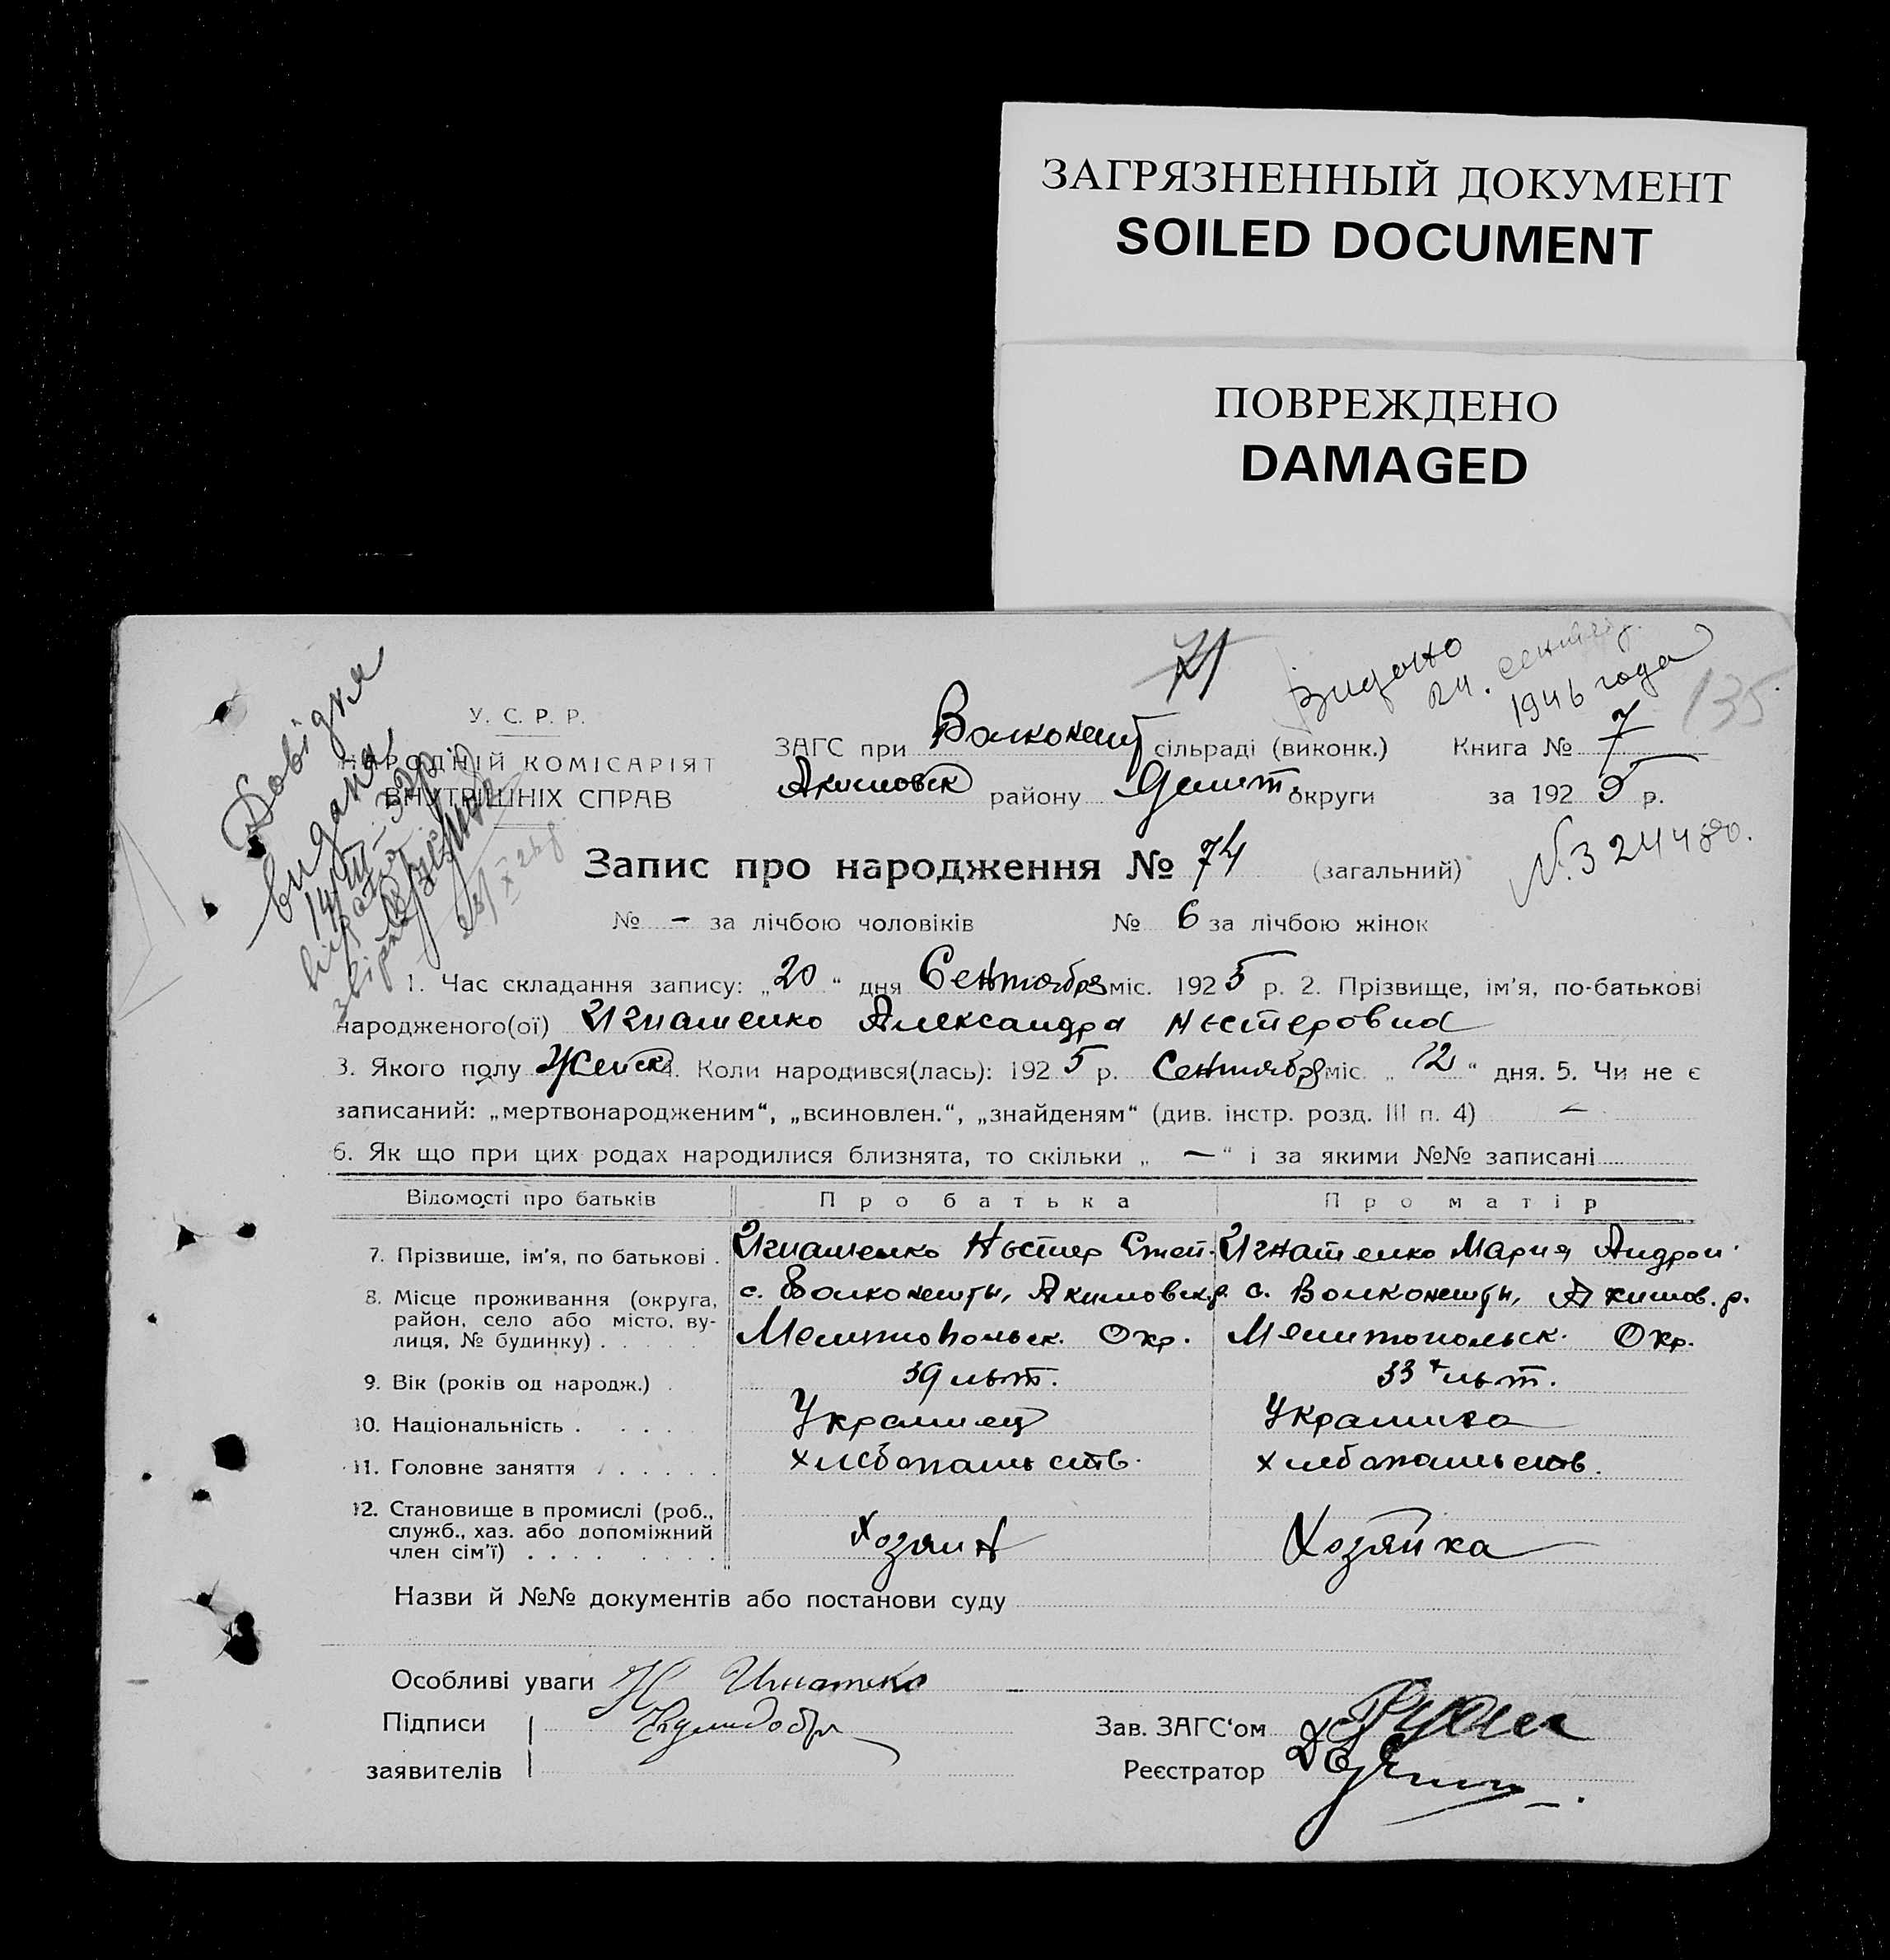 ЗАГРЯЗНЕННЫЙ ДОКУМЕНТ
SOILED DOCUMENT
ПОВРЕЖДЕНО
DAMAGED
Видано
24. сентяб.
1946 года
135
Довідка
видана
У. С. Р. Р.
НАРОДНІЙ КОМІСАРІЯТ
ВНУТРІШНІХ СПРАВ
ЗАГС при Волконешт сільраді (виконк.) Книга № 7
Акимовск району Мелит. округи за 1925 р.
Запис про народження № 74 (загальний)
№ – за лічбою чоловіків № 6 за лічбою жінок
1. Час складання запису: „20“ дня Сентября міс. 1925 р. 2. Прізвище, ім'я, по-батькові
народженого(ої) Игнатенко Александра Нестеровна
3. Якого полу Женск 4. Коли народився(лась): 1925 р. Сентября міс. „12“ дня. 5. Чи не є
записаний: „мертвонародженим“, „всиновлен.“, „знайденям“ (див. інстр. розд. III п. 4) –
6. Як що при цих родах народилися близнята, то скільки „ — “ і за якими №№ записані
Відомості про батьків Про батька Про матір
7. Прізвище, ім'я, по батькові . Игнатенко Нестер Степ. Игнатенко Мария Андреи
8. Місце проживання (округа, с. Волконешты, Акимовск. р. с. Волконешты, Акимов. р.
район, село або місто, ву-
лиця, № будинку) . Мелитопольск. Окр. Мелитопольск. Окр.
9. Вік (років од народж.) . 39 лет. 33 лет.
10. Національність . Украинец Украинка
11. Головне заняття . хлебопашеств. хлебопашеств.
12. Становище в промислі (роб.,
служб., хаз. або допоміжний
член сім'ї) . Хозяин Хозяйка
Назви й №№ документів або постанови суду
Особливі уваги Н Игнатенко
Підписи
заявителів
Зав. ЗАГС'ом
Реєстратор